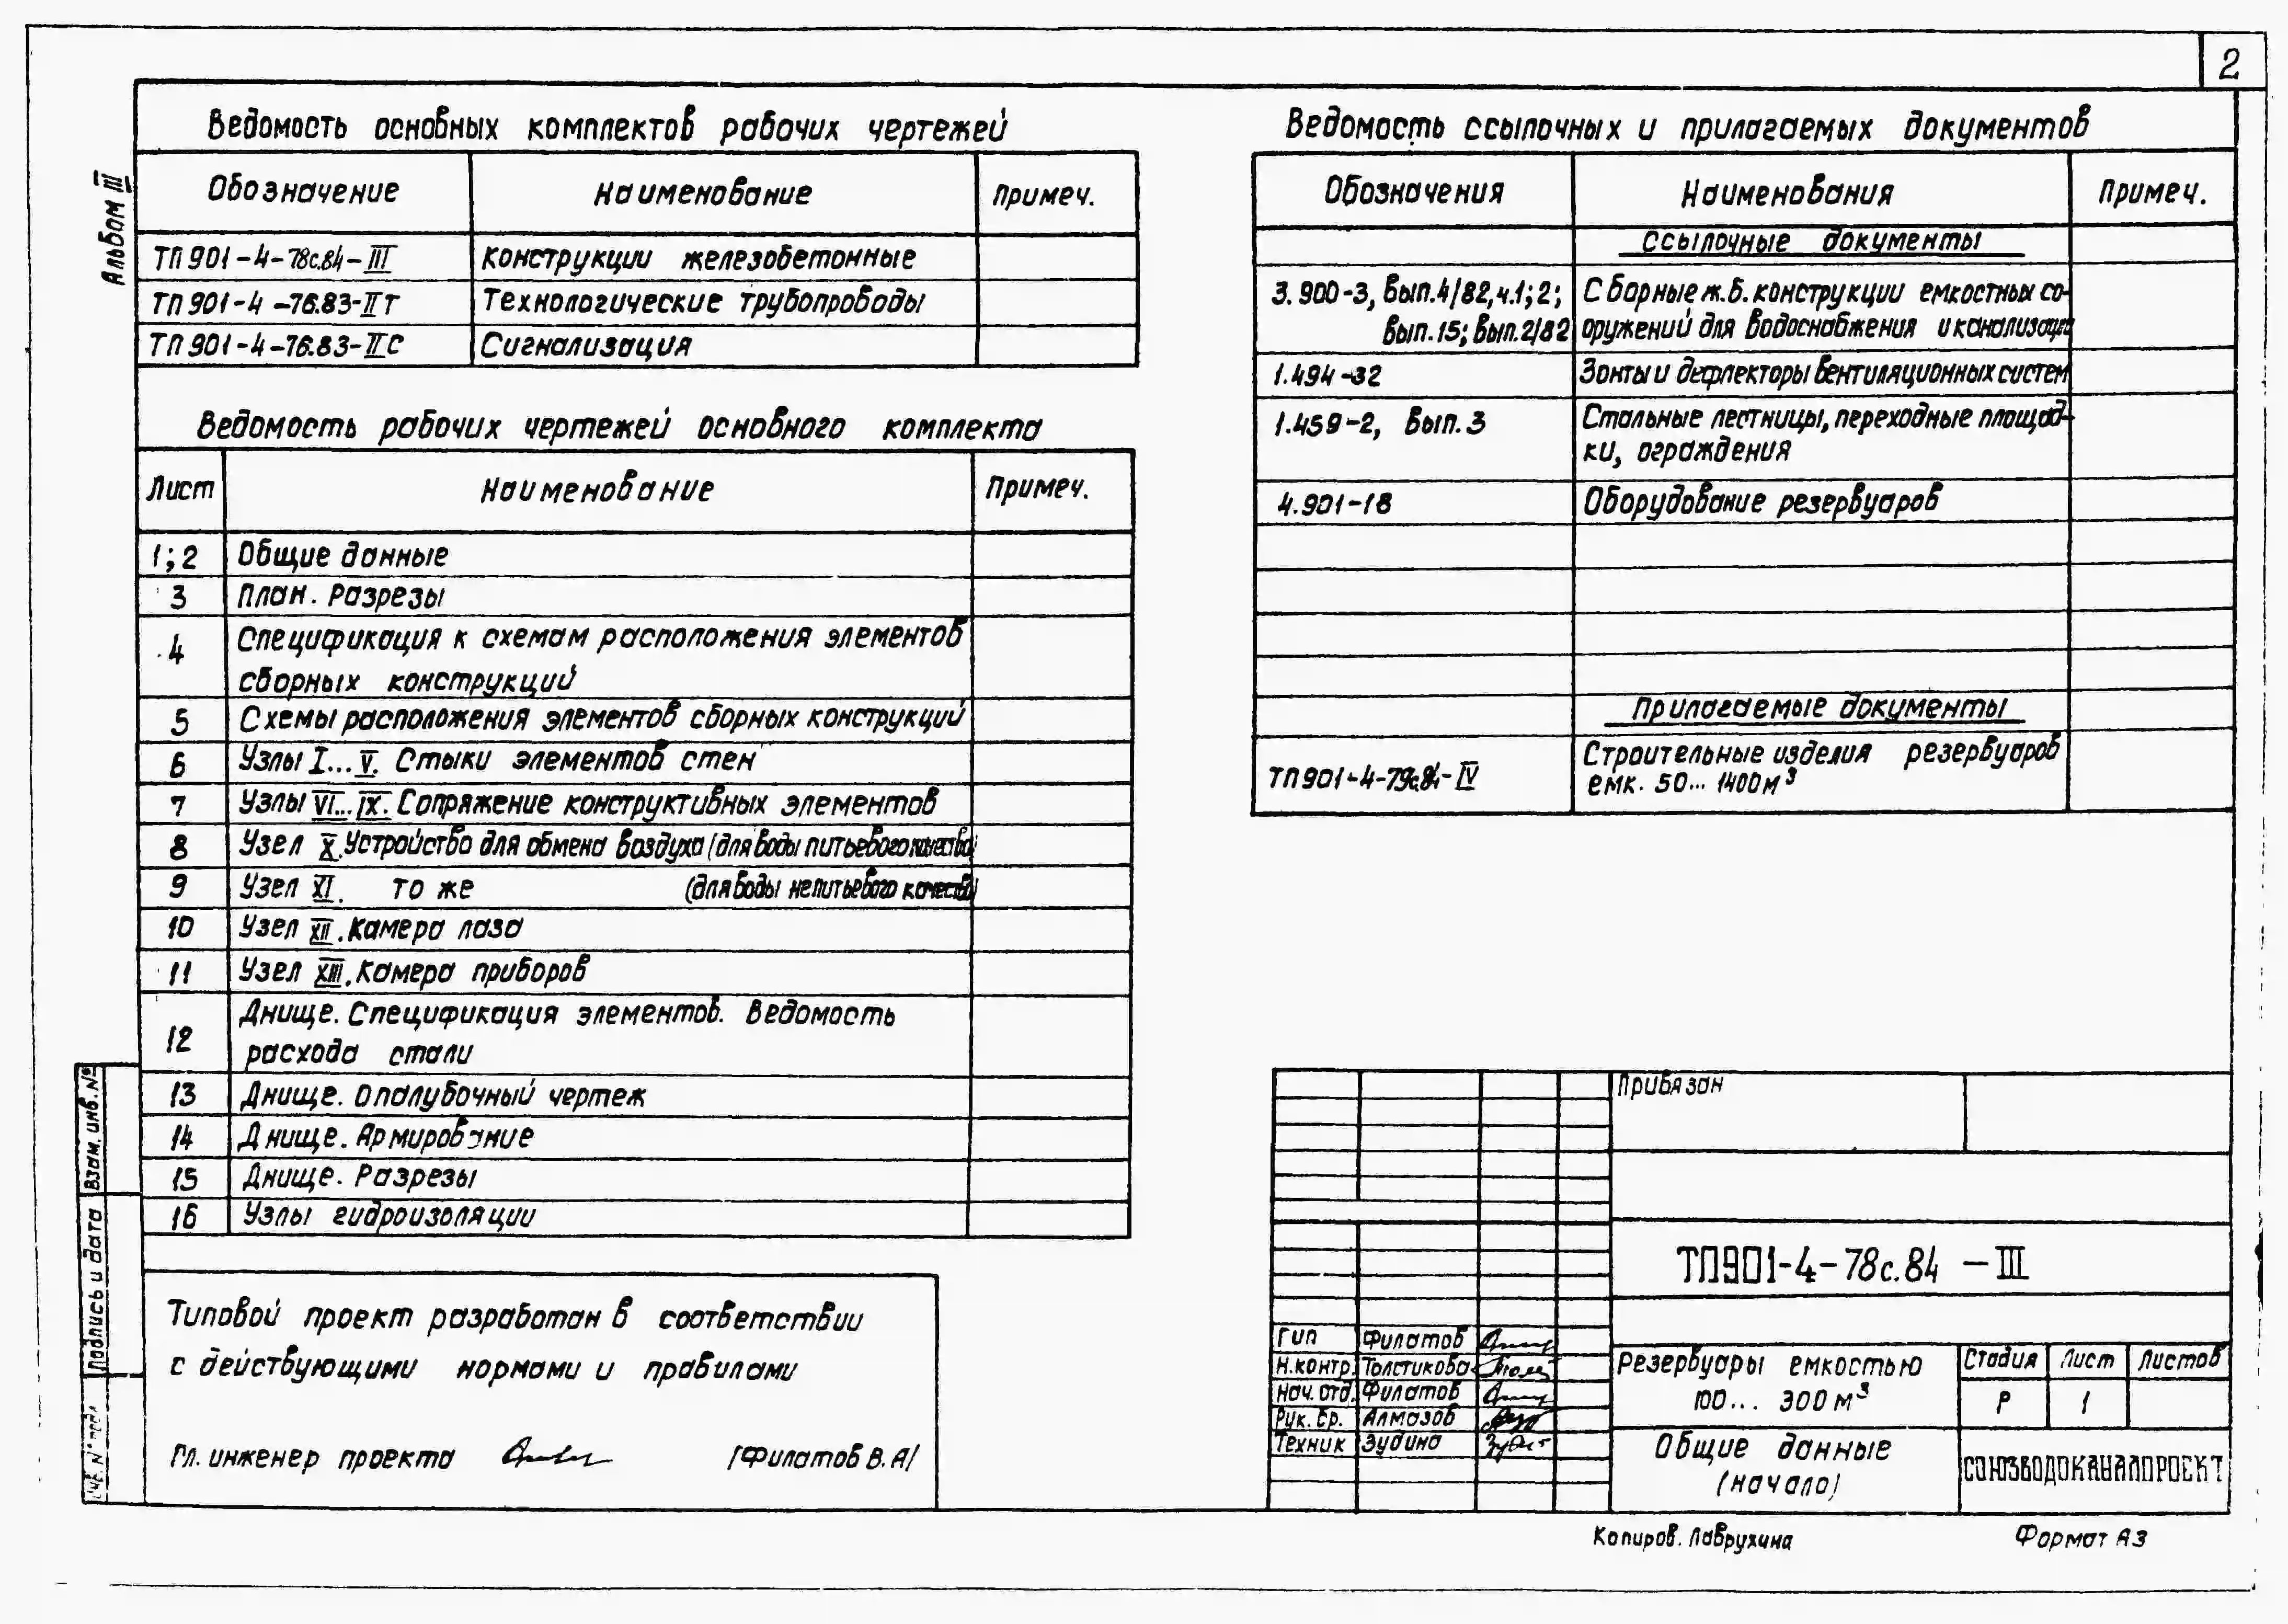 2
Альбом III
Ведомость основных комплектов рабочих чертежей
Обозначение Наименование Примеч.
ТП 901-4-78с.84-III Конструкции железобетонные
ТП 901-4-76.83-II Т Технологические трубопроводы
ТП 901-4-76.83-II С Сигнализация
Ведомость рабочих чертежей основного комплекта
Лист Наименование Примеч.
1; 2 Общие данные
3 План. Разрезы
4 Спецификация к схемам расположения элементов
сборных конструкций
5 Схемы расположения элементов сборных конструкций
6 Узлы I...V. Стыки элементов стен
7 Узлы VI...IX. Сопряжение конструктивных элементов
8 Узел X. Устройство для обмена воздуха (для воды питьевого качества)
9 Узел XI. То же (для воды непитьевого качества)
10 Узел XII. Камера лаза
11 Узел XIII. Камера приборов
12 Днище. Спецификация элементов. Ведомость
расхода стали
13 Днище. Опалубочный чертеж
14 Днище. Армирование
15 Днище. Разрезы
16 Узлы гидроизоляции
Типовой проект разработан в соответствии
с действующими нормами и правилами
Гл. инженер проекта /Филатов В.А/
Взам. инв. №
Подпись и дата
Инв. № подл.
Ведомость ссылочных и прилагаемых документов
Обозначения Наименования Примеч.
Ссылочные документы
3.900-3, Вып.4/82, ч.1; 2; Сборные ж.б. конструкции емкостных со-
Вып.15; Вып.2/82 оружений для водоснабжения и канализации
1.494-32 Зонты и дефлекторы вентиляционных систем
1.459-2, Вып.3 Стальные лестницы, переходные площад-
ки, ограждения
4.901-18 Оборудование резервуаров
Прилагаемые документы
Строительные изделия резервуаров
ТП 901-4-79с.84-IV емк. 50... 1400 м³
Привязан
ТП901-4-78с.84 -III
Гип Филатов
Н.контр. Толстикова
Нач. отд. Филатов
Рук. бр. Алмазов
Техник Зудина
Резервуары емкостью
100... 300 м³
Стадия Лист Листов
Р 1
Общие данные
(начало)
СОЮЗВОДОКАНАЛПРОЕКТ
Копиров. Лаврухина Формат А3